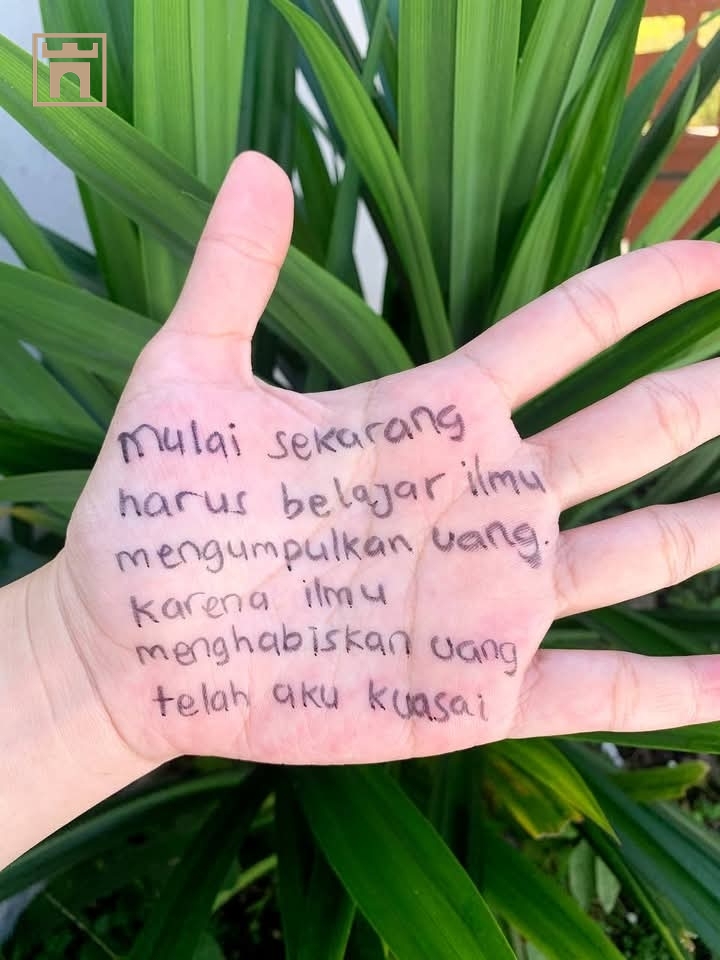 mulai sekarang
harus belajar ilmu
mengumpulkan uang.
karena ilmu
menghabiskan uang
telah aku kuasai